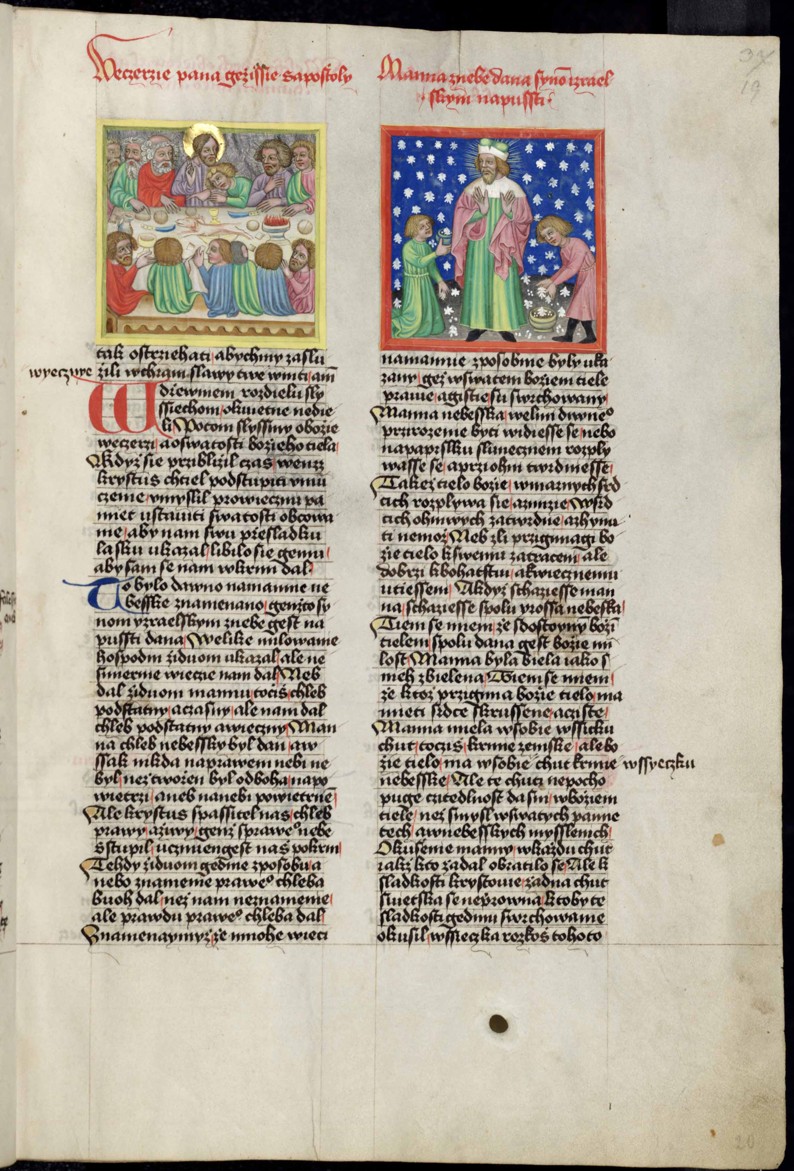 Weczerzie pana gezissie s aposstoly
tak ostrziehati abychmy zaslu
wyeczwe žili w chram slawy twe wniti amen
W drzewniem rozdielu sly
ssiechom o kwietne nedie
li Potom slyssimy o bozie
weczerzi a o swatosti bozieho tiela
A kdyz sie przibližil czas w enzz
krystus chtiel podstupiti vmu
czenie vmyslil pro wiecznu pa
miet ustawiti swatosti obcowa
nie aby nam swu przesladku
lasku ukazal libilo sie gemu
aby sam se nam w krmi dal
To bylo dawno na mannie ne
besske znamenano genžto sy
nom yzraelskym z nebe gest na
pussti dana Welike milowanie
hospodin židuom ukazal ale ne
smierne wiecze nam dal Neb
dal židuom mannu točiš chleb
podstatny a czasny ale nam dal
chleb podstatny a wieczny Man
na chleb nebessky byl dan a w
ssak nikda na prawem nebi ne
byl než tworzen byl od boha na po
wietrzi aneb na nebi powietrnem
Ale krystus spassitel nas chleb
prawy a žiwy genž s praweho nebe
sstupil uczinien gest nas pokrm
Tehdy židuom gedine zposobu a
nebo znamenie praweho chleba
buoh dal než nam ne znamenie
ale prawdu praweho chleba dal
Znamenaymyž že mnohe wieci
Manna z nebe dana synom izrael
skym na pussti
na mannie zposobnie byly uka
zany gež w swatem boziem tiele
prawie a gistie su swrchowany
Manna nebesska welmi diwneho
przirozenie byti widiesse se nebo
na paprslku slunecznem rozply
wasse se a przi ohni twrdniesse
Takež tielo božie w marnych srd
cich rozplywa sie a mizie W srd
cich ohniwych zatwrdne a zhynu
ti nemož Neb zli przigimagi bo
žie tielo k swemu zatraceni ale
dobrzi k bohatstwi a k wiecznemu
utiesseni A kdyz schaziesse man
na schaziesse spolu y rossa nebeska
Tiem se mieni že s dostoynym božim
tielem spolu dana gest božie mi
lost Manna byla biela iako s
nieh zbielena Tiem se mieni
že ktož przigima božie tielo ma
mieti srdce skrussene a cziste
Manna miela w sobie wssicku
chut točuš krmie zemske ale bo
žie tielo ma w sobie chut krmie wssyeczku
nebesske Ale te chuti nepocho
puge czitedlnost da sini w božiem
tiele než smysl w swatych pamie
tech a w nebesskych mysslenich
Okusenie manny w každu chut
iakž kto žadal obratilo se Ale k
sladkosti krystowie žadna chut
swietska se neprzirowna Ktoby te
sladkosti gednu swrchowanie
okusil wssieczka rozkoš tohoto